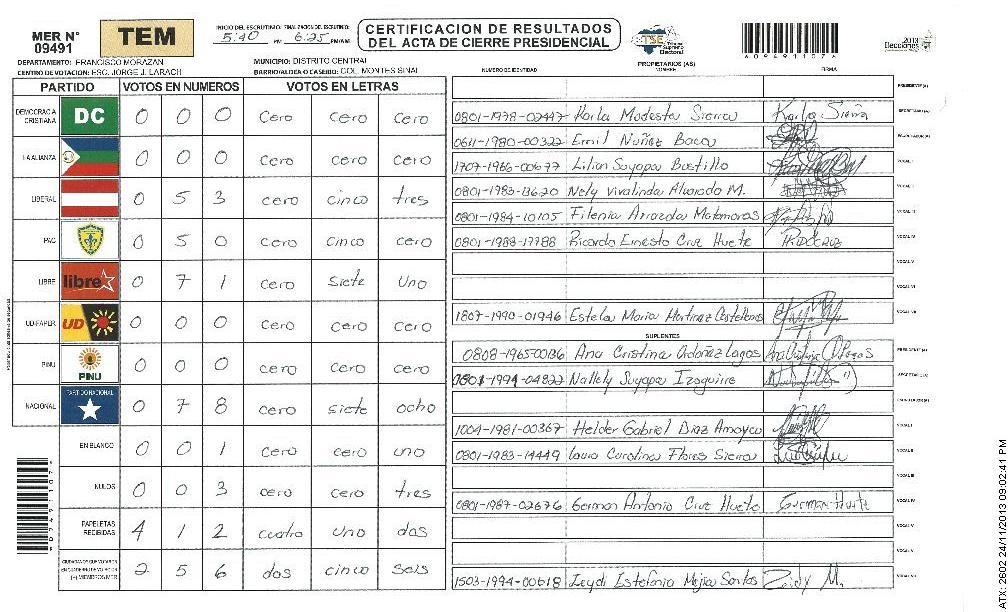 MER N° 09491
TEM
INICIO DEL ESCRUTINIO: 5:40 PM FINALIZACION DEL ESCRUTINIO: 6:25 PM/AM
CERTIFICACION DE RESULTADOS
DEL ACTA DE CIERRE PRESIDENCIAL
TSE Tribunal Supremo Electoral
2013 Elecciones
DEPARTAMENTO: FRANCISCO MORAZAN
MUNICIPIO: DISTRITO CENTRAL
CENTRO DE VOTACION: ESC. JORGE J. LARACH
BARRIO/ALDEA O CASERIO: COL. MONTES SINAI
PROPIETARIOS (AS)
NUMERO DE IDENTIDAD NOMBRE FIRMA
PARTIDO VOTOS EN NUMEROS VOTOS EN LETRAS
DEMOCRACIA CRISTIANA DC 0 0 0 cero cero cero
LA ALIANZA 0 0 0 cero cero cero
LIBERAL 0 5 3 cero cinco tres
PAC 0 5 0 cero cinco cero
LIBRE libre 0 7 1 cero siete uno
UD-FAPER UD 0 0 0 cero cero cero
PINU PINU 0 0 0 cero cero cero
NACIONAL PARTIDO NACIONAL 0 7 8 cero siete ocho
EN BLANCO 0 0 1 cero cero uno
NULOS 0 0 3 cero cero tres
PAPELETAS RECIBIDAS 4 1 2 cuatro uno dos
CIUDADANOS QUE VOTARON EN CUADERNO DE VOTACION (+) MIEMBROS MER 2 5 6 dos cinco seis
PRESIDENTE (A)
0801-1978-02447 Karla Modesta Sierra Karla Sierra SECRETARIO (A)
0611-1980-00322 Emil Nuñez Bacca ESCRUTADOR (A)
1707-1966-00677 Lilian Suyapa Bustillo VOCAL I
0801-1983-13620 Nely Vivalinda Alvarado M. VOCAL II
0801-1984-10105 Filenia Arrazola Matamoros VOCAL III
0801-1988-17788 Ricardo Ernesto Cruz Huete VOCAL IV
VOCAL V
VOCAL VI
1807-1990-01946 Estela Maria Martinez Castellanos VOCAL VII
SUPLENTES
0808-1965-00136 Ana Cristina Ordoñez Lagos PRESIDENTE (A)
0801-1994-04822 Nallely Suyapa Izaguirre SECRETARIO (A)
ESCRUTADOR (A)
1004-1981-00367 Helder Gabriel Diaz Amaya VOCAL I
0801-1983-14449 Laura Carolina Flores Sierra VOCAL II
VOCAL III
0801-1987-02676 German Antonio Cruz Huete German Huete VOCAL IV
VOCAL V
VOCAL VI
1503-1994-00618 Leydi Estefania Mejia Santos Leidy M. VOCAL VII
ATX-2602 24/11/2013 09:02:41 PM